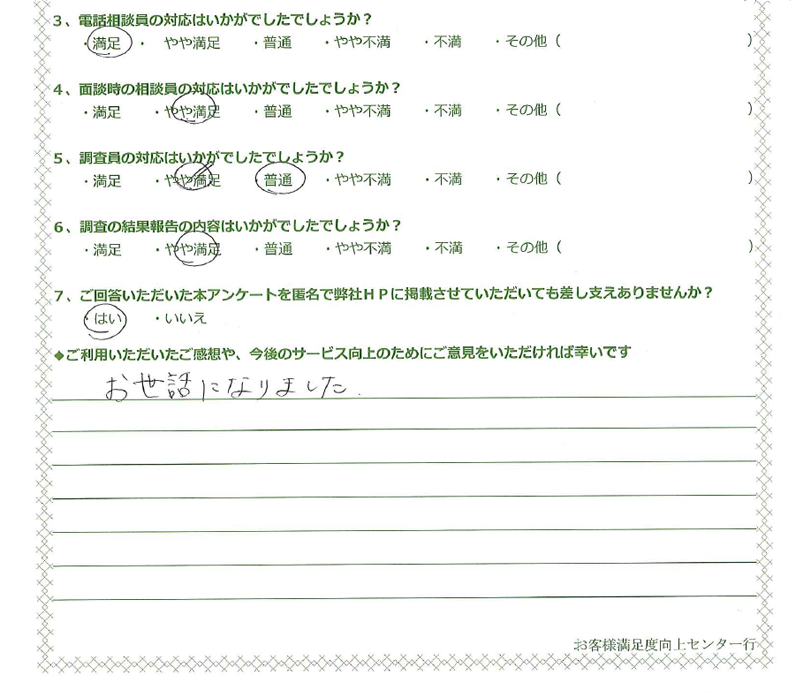 3、電話相談員の対応はいかがでしたでしょうか？
・満足 ・ やや満足 ・普通 ・やや不満 ・不満 ・その他（ ）
4、面談時の相談員の対応はいかがでしたでしょうか？
・満足 ・やや満足 ・普通 ・やや不満 ・不満 ・その他（ ）
5、調査員の対応はいかがでしたでしょうか？
・満足 ・やや満足 ・普通 ・やや不満 ・不満 ・その他（ ）
6、調査の結果報告の内容はいかがでしたでしょうか？
・満足 ・やや満足 ・普通 ・やや不満 ・不満 ・その他（ ）
7、ご回答いただいた本アンケートを匿名で弊社ＨＰに掲載させていただいても差し支えありませんか？
・はい ・いいえ
◆ご利用いただいたご感想や、今後のサービス向上のためにご意見をいただければ幸いです
お世話になりました.
お客様満足度向上センター行